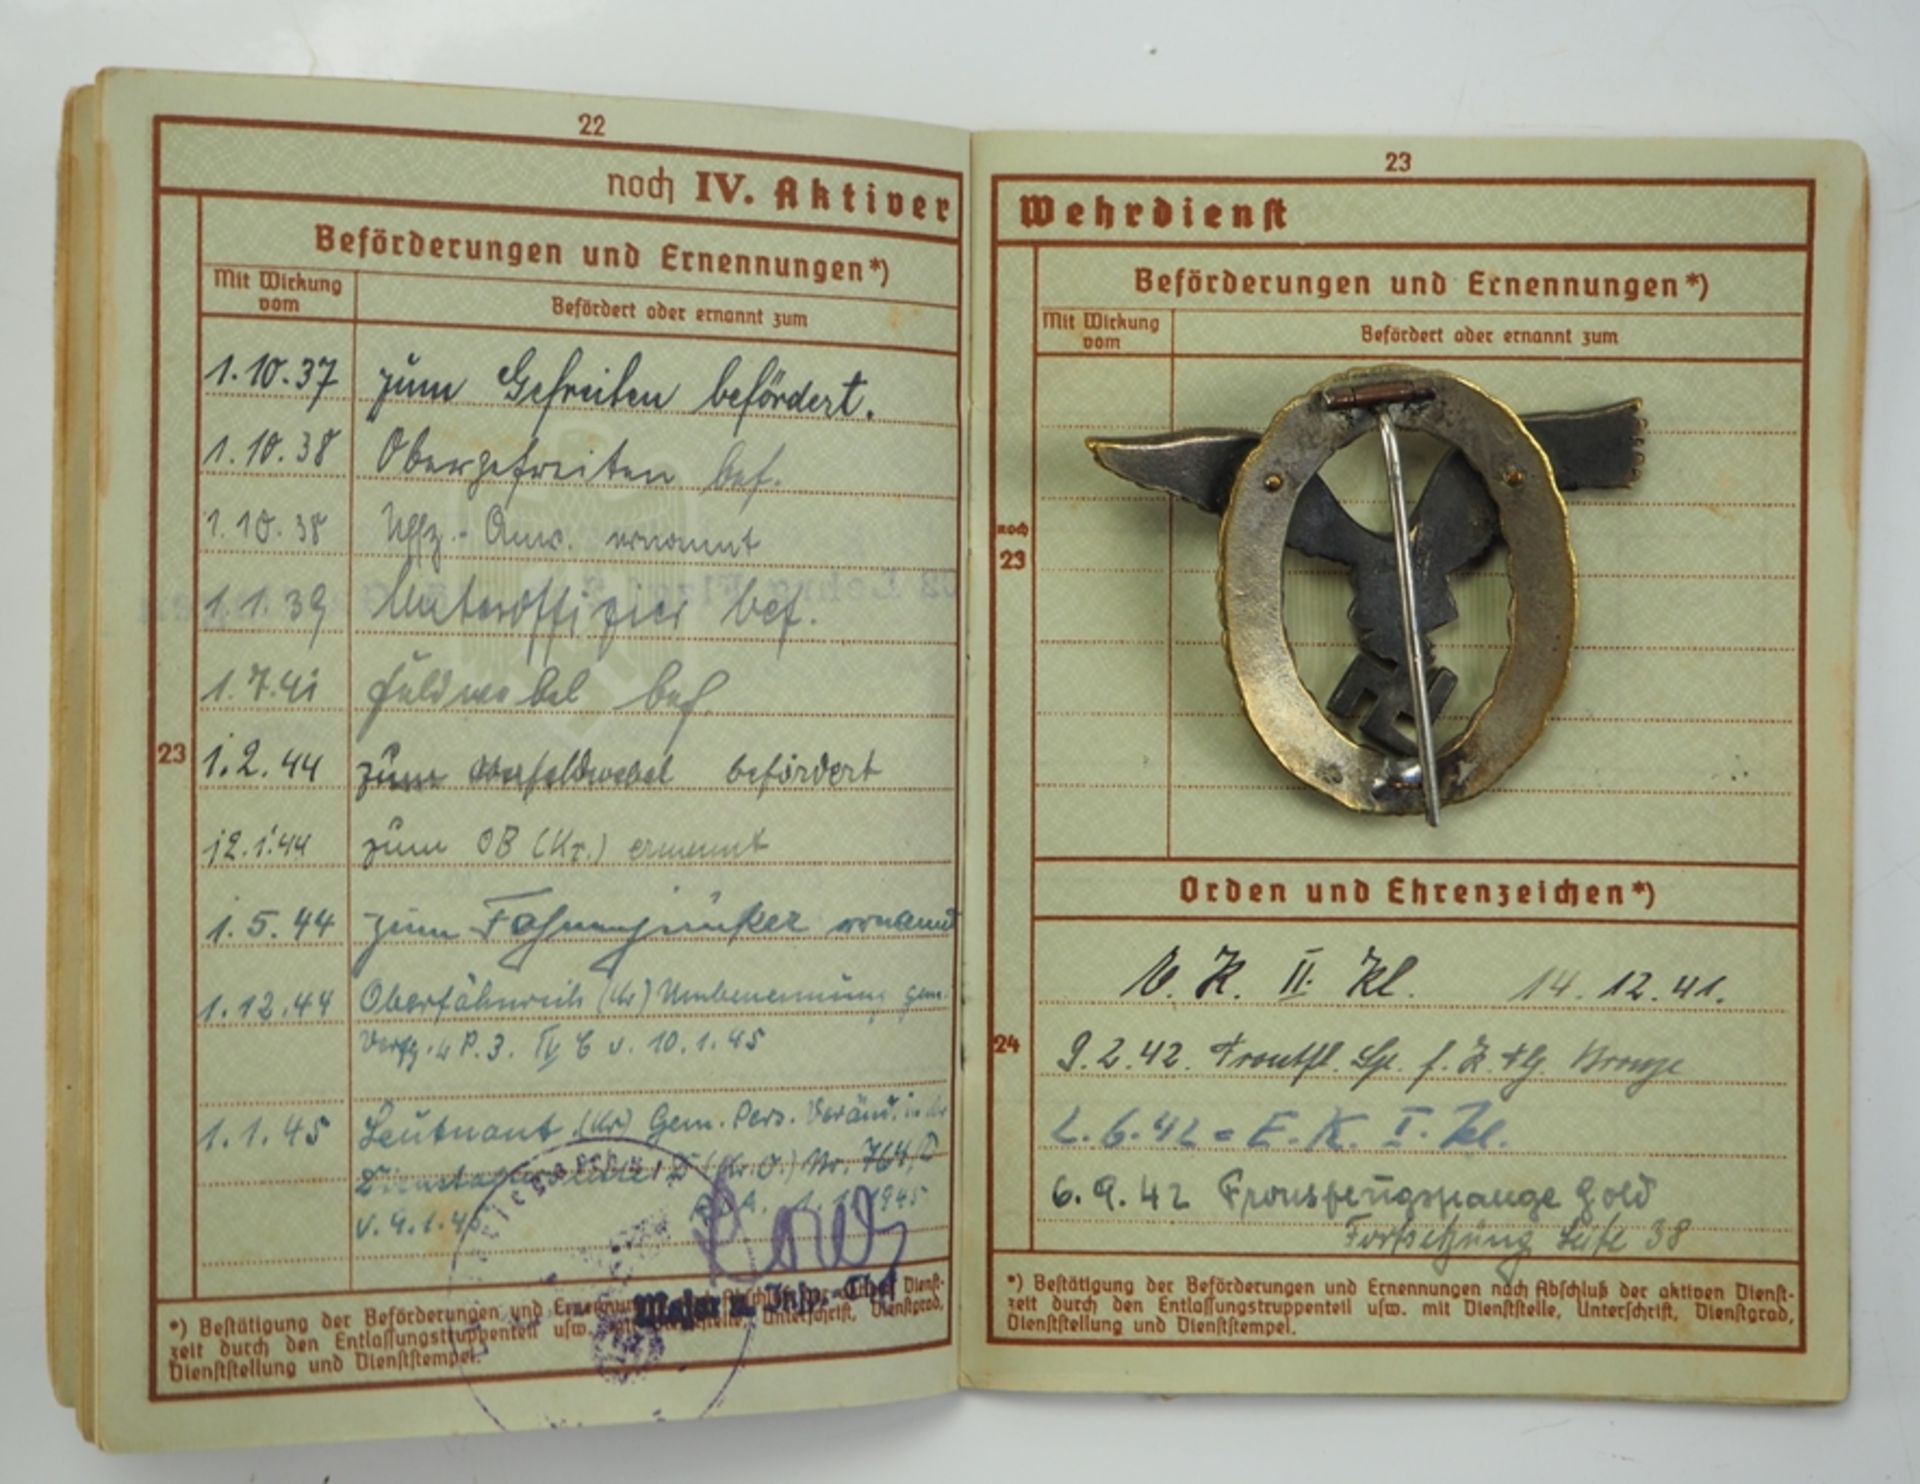 22
noch IV. Aktiver
Beförderungen und Ernennungen*)
Mit Wirkung
vom
Befördert oder ernannt zum
1.10.37 zum Gefreiten befördert.
1.10.38 Obergefreiten bef.
1.10.38 Uffz.-Anw. ernannt
1.1.39 Unteroffizier bef.
1.7.41 Feldwebel bef.
23
1.2.44 zum Oberfeldwebel befördert
12.1.44 zum OB (Kr.) ernannt
1.5.44 zum Fahnenjunker ernannt
1.12.44 Oberfähnrich (Kr) Umbenennung gem.
Verfg. P.3. v. 10.1.45
1.1.45 Leutnant (Kr) Gem. Pers. Veränd. in der
(Kr.O.) Nr. 764/
v. 9.1.45 R.D.A. 1.1.1945
Major u. Insp.-Chef
*) Bestätigung der Beförderungen und Ernennungen nach Abschluß der aktiven Dienst-
zeit durch den Entlassungstruppenteil usw. mit Dienststelle, Unterschrift, Dienstgrad,
Dienststellung und Dienststempel.
23
Wehrdienst
Beförderungen und Ernennungen*)
Mit Wirkung
vom
Befördert oder ernannt zum
noch
23
Orden und Ehrenzeichen*)
E.K. II. Kl. 14.12.41.
24
9.2.42. Frontfl. Sp. f. Z. Flg. Bronze
2.6.42 = E.K. I. Kl.
6.9.42 Frontflugspange Gold
Fortsetzung Seite 38
*) Bestätigung der Beförderungen und Ernennungen nach Abschluß der aktiven Dienst-
zeit durch den Entlassungstruppenteil usw. mit Dienststelle, Unterschrift, Dienstgrad,
Dienststellung und Dienststempel.